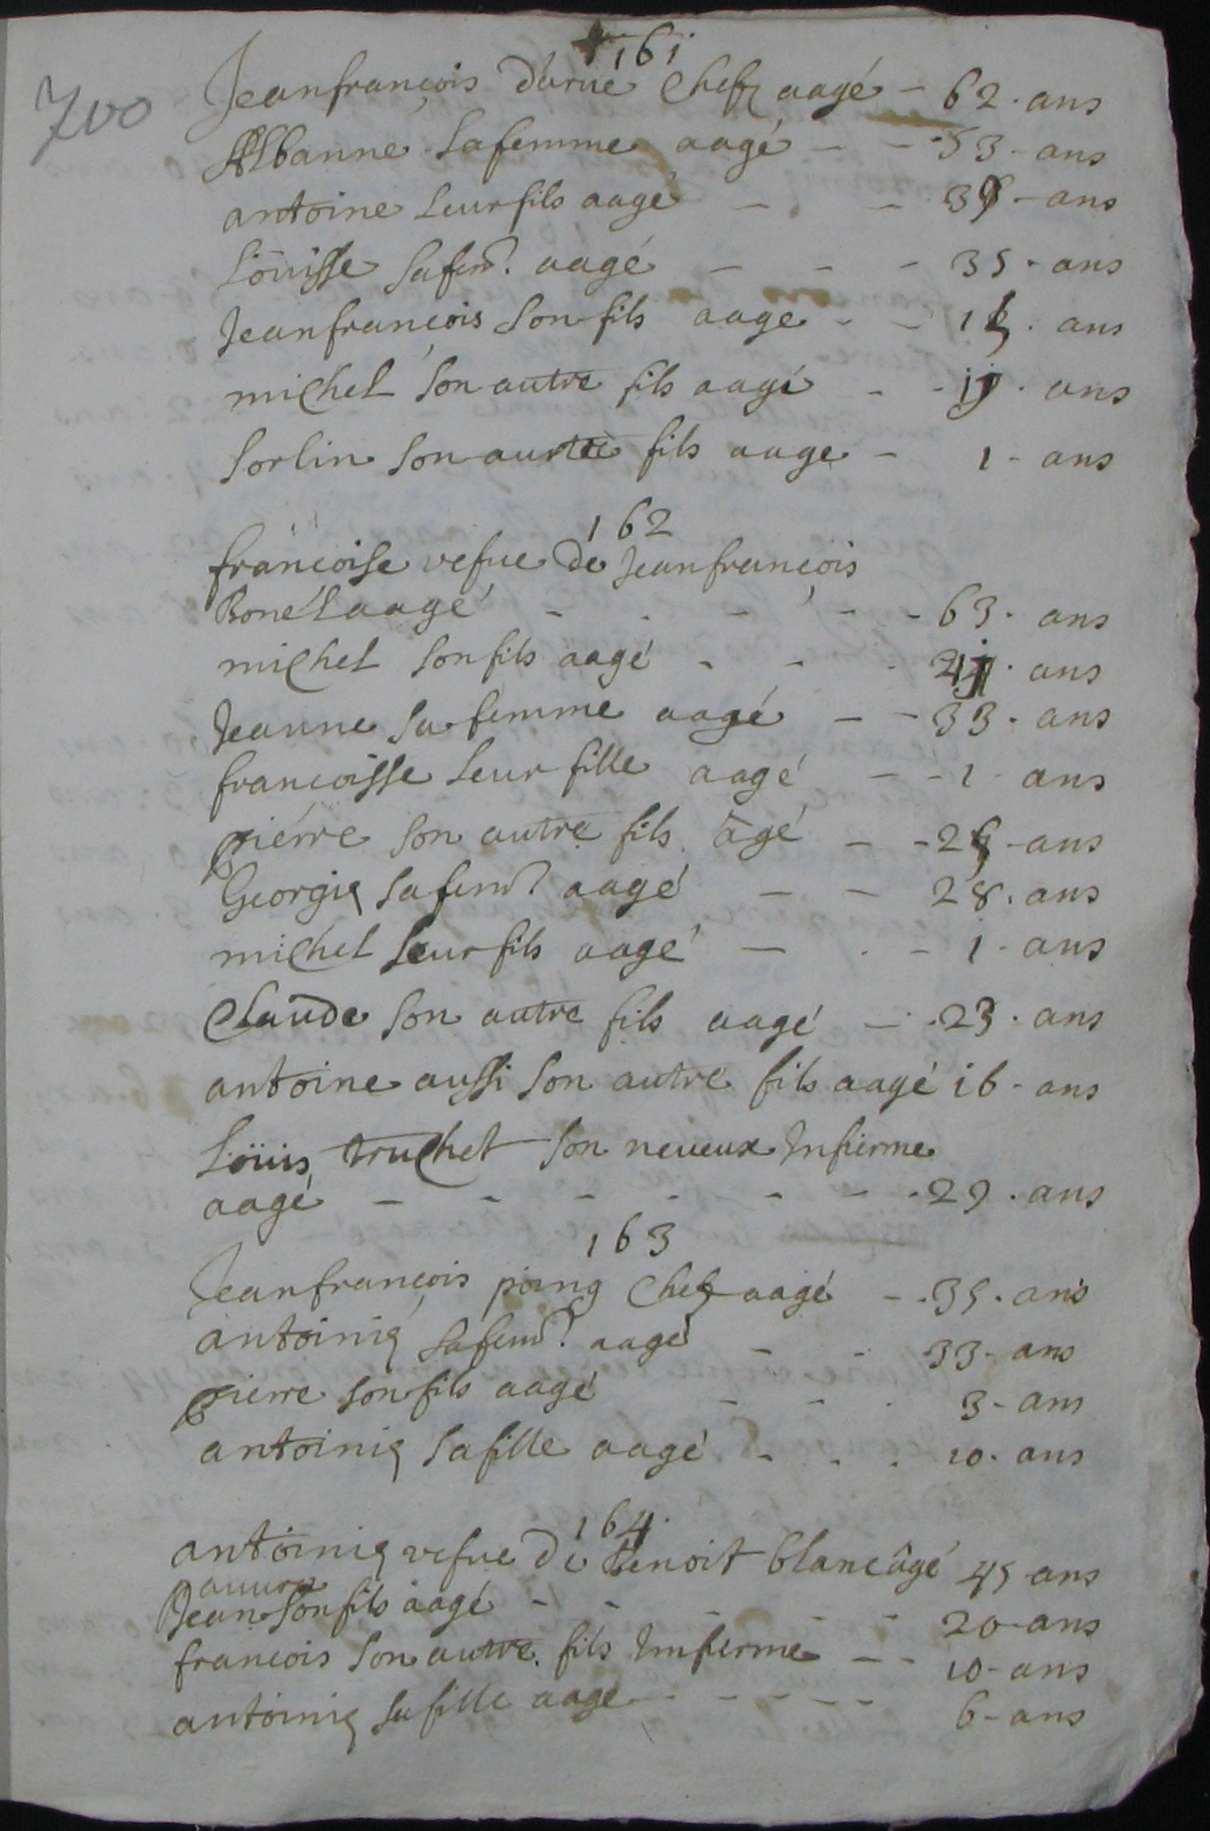 700
161
Jeanfrancois darué Chefz aagé - 62. ans
Albanne Safemme aagé - - 53 - ans
antoine Leurfils aagé - - - ans
Loüisse Safem.e aagé - - - 35 - ans
Jeanfrancois Son fils aage - - . ans
michel Son autre fils aagé - - . ans
Sorlin Son autre fils aage - 1 - ans
162
francoise vefue de Jeanfrancois
Bonél aagé - - - - - 63. ans
michel Son fils aagé - - - . ans
Jeanne Sa femme aagé - - 33. ans
francoisse Leur fille aagé - - 1 - ans
pierre Son autre fils âgé - - - ans
Georgiq Safem.e aagé - - 28. ans
michel Leurfils aagé - . - 1 - ans
Claude Son autre fils aagé - . 23. ans
antoine aussi Son autre fils aagé 16 - ans
Loüis truchet Son neueux Infirme
aagé - - - - - - . 29. ans
163
Jeanfrancois poing Chefz aagé - . 35. ans
antoiniq Safem.e aagé - - 33 - ans
pierre Son fils aagé - - . 3 - ans
antoiniq Safille aagé - . . 10. ans
164
antoiniq vefue de Benoit blanc âgé 45 ans
Jean Son fils aagé - - - - - 20 - ans
francois Son autre fils Imfirme - - 10 - ans
antoiniq Sa fille aagé - - - - - 6 - ans